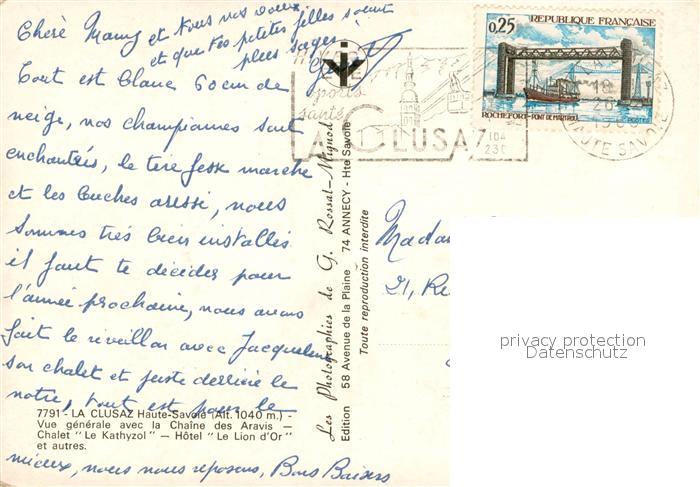 Chère Mamy et tous nos voeux
et que tes petites filles soient
plus sages
Tout est blanc 60 cm de
neige, nos championnes sont
enchantées, le tire fesse marche
et les luches aussi, nous
sommes très bien installés
il faut te décider pour
l'année prochaine, nous avons
fait le réveillon avec Jacqueline
son chalet et juste derrière le
notre, tout est pour le
7791 - LA CLUSAZ Haute-Savoie (Alt. 1040 m.) -
Vue générale avec la Chaîne des Aravis —
Chalet "Le Kathyzol" — Hôtel "Le Lion d'Or"
et autres.
mieux, nous nous reposons, Bons Baisers
Les Photographies de G. Rossat-Mignod
Edition 58 Avenue de la Plaine 74 ANNECY - Hte Savoie
Toute reproduction interdite
sports
santé
LA CLUSAZ
0,25 REPUBLIQUE FRANÇAISE
ROCHEFORT - PONT DE MARTROU
POSTES
18
26
HAUTE SAVOIE
Madam
21, Ru
privacy protection
Datenschutz